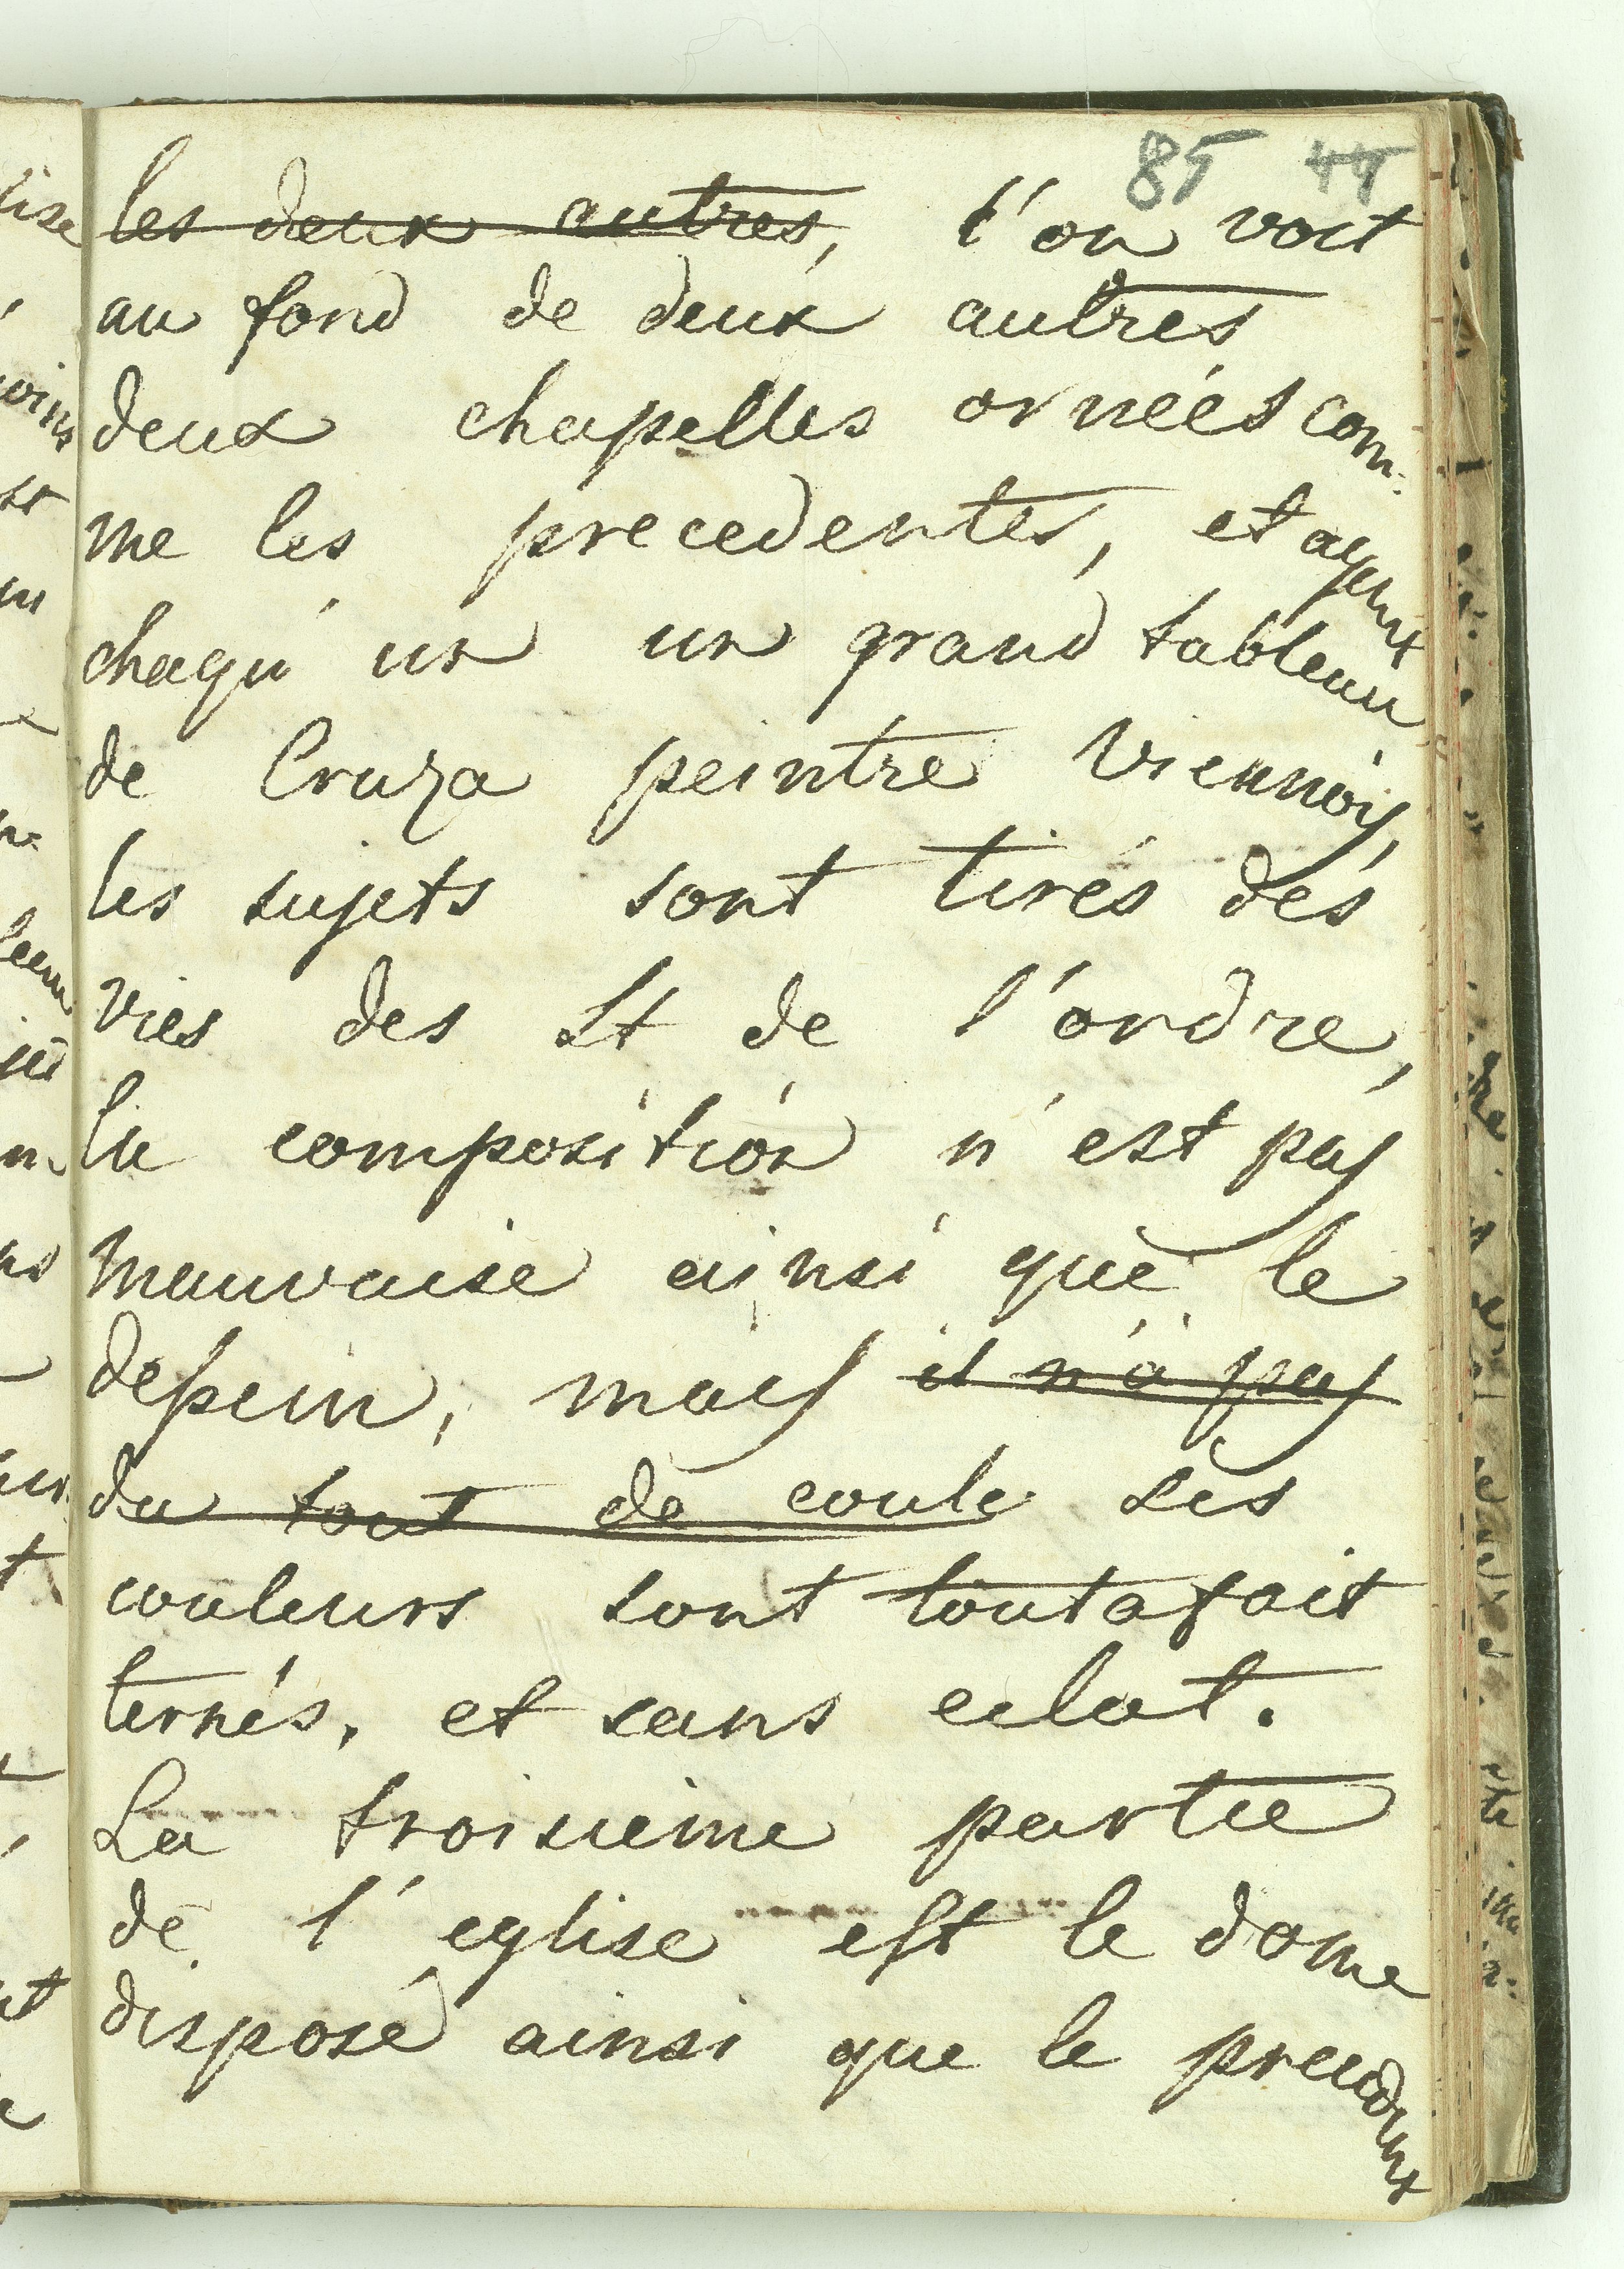 85 44
les deux autres, l'on voit
au fond de deux autres
deux chapelles ornées com:
me les precedentes, et ayent
chaqu'un un grand tableau
de Cruza peintre Viennois,
les sujets sont tirés des
vies des St de l'ordre,
la composition n'est pas
mauvaise ainsi que le
dessein, mais il n'a pas
du tout de coule ses
couleurs sont toutafait
ternés, et sans eclat.
La troisieme partie
de l'eglise est le dome
disposé ainsi que le precedent